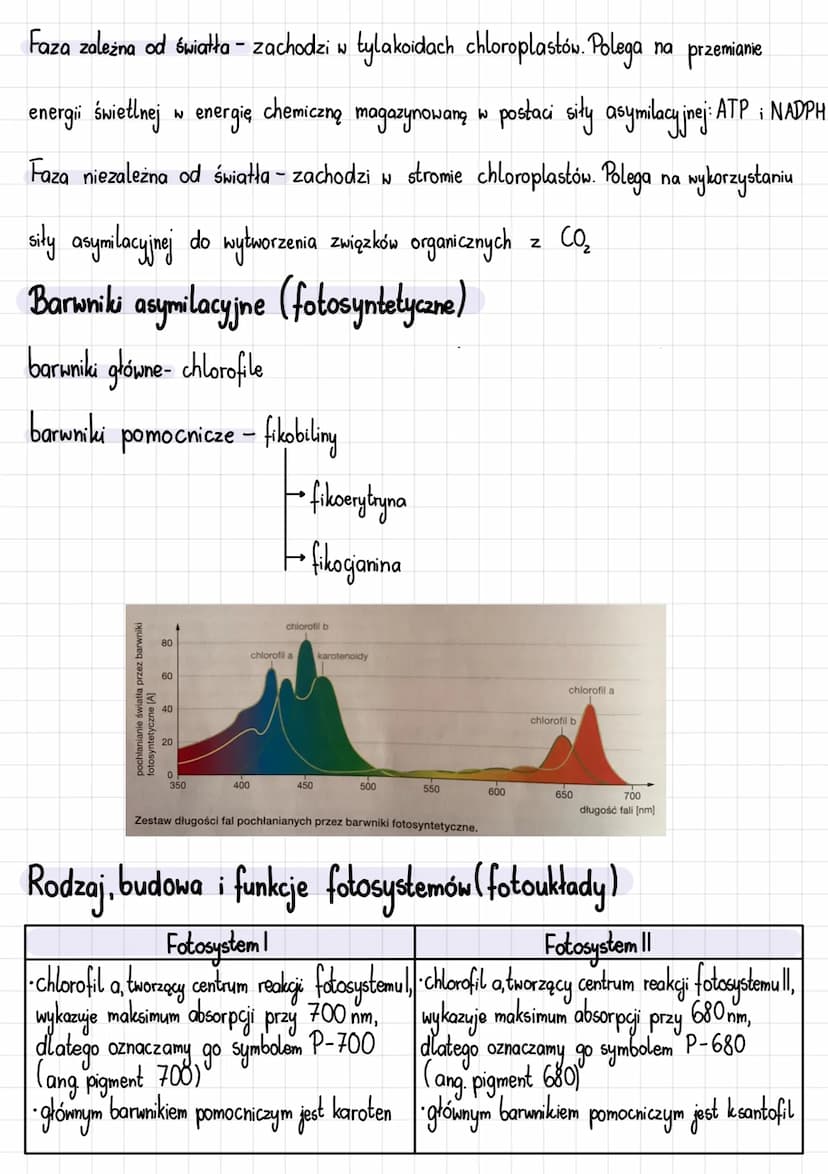 Faza zależna od światła - zachodzi w tylakoidach chloroplastów. Polega na przemianie
energii świetlnej w energię chemiczną magazynowaną w postaci siły asymilacyjnej: ATP i NADPH
Faza niezależna od światła - zachodzi w stromie chloroplastów. Polega na wykorzystaniu
siły asymilacyjnej do wytworzenia związków organicznych z CO₂
Barwniki asymilacyjne (fotosyntetyczne)
barwniki główne- chlorofile
barwniki pomocnicze - fikobiliny
→ fikoerytryna
→ fikocjanina
pochłanianie światła przez barwniki
fotosyntetyczne [A]
80
60
40
20
0
chlorofil b
chlorofil a
karotenoidy
chlorofil a
chlorofil b
350 400 450 500 550 600 650 700
długość fali [nm]
Zestaw długości fal pochłanianych przez barwniki fotosyntetyczne.
Rodzaj, budowa i funkcje fotosystemów (fotoukłady)
Fotosystem I
• chlorofil a, tworzący centrum reakcji fotosystemu I,
wykazuje maksimum absorpcji przy 700 nm,
dlatego oznaczamy go symbolem P-700
(ang. pigment 700)
• głównym barwnikiem pomocniczym jest karoten
Fotosystem II
• chlorofil a, tworzący centrum reakcji fotosystemu II,
wykazuje maksimum absorpcji przy 680 nm,
dlatego oznaczamy go symbolem P-680
(ang. pigment 680)
• głównym barwnikiem pomocniczym jest ksantofil